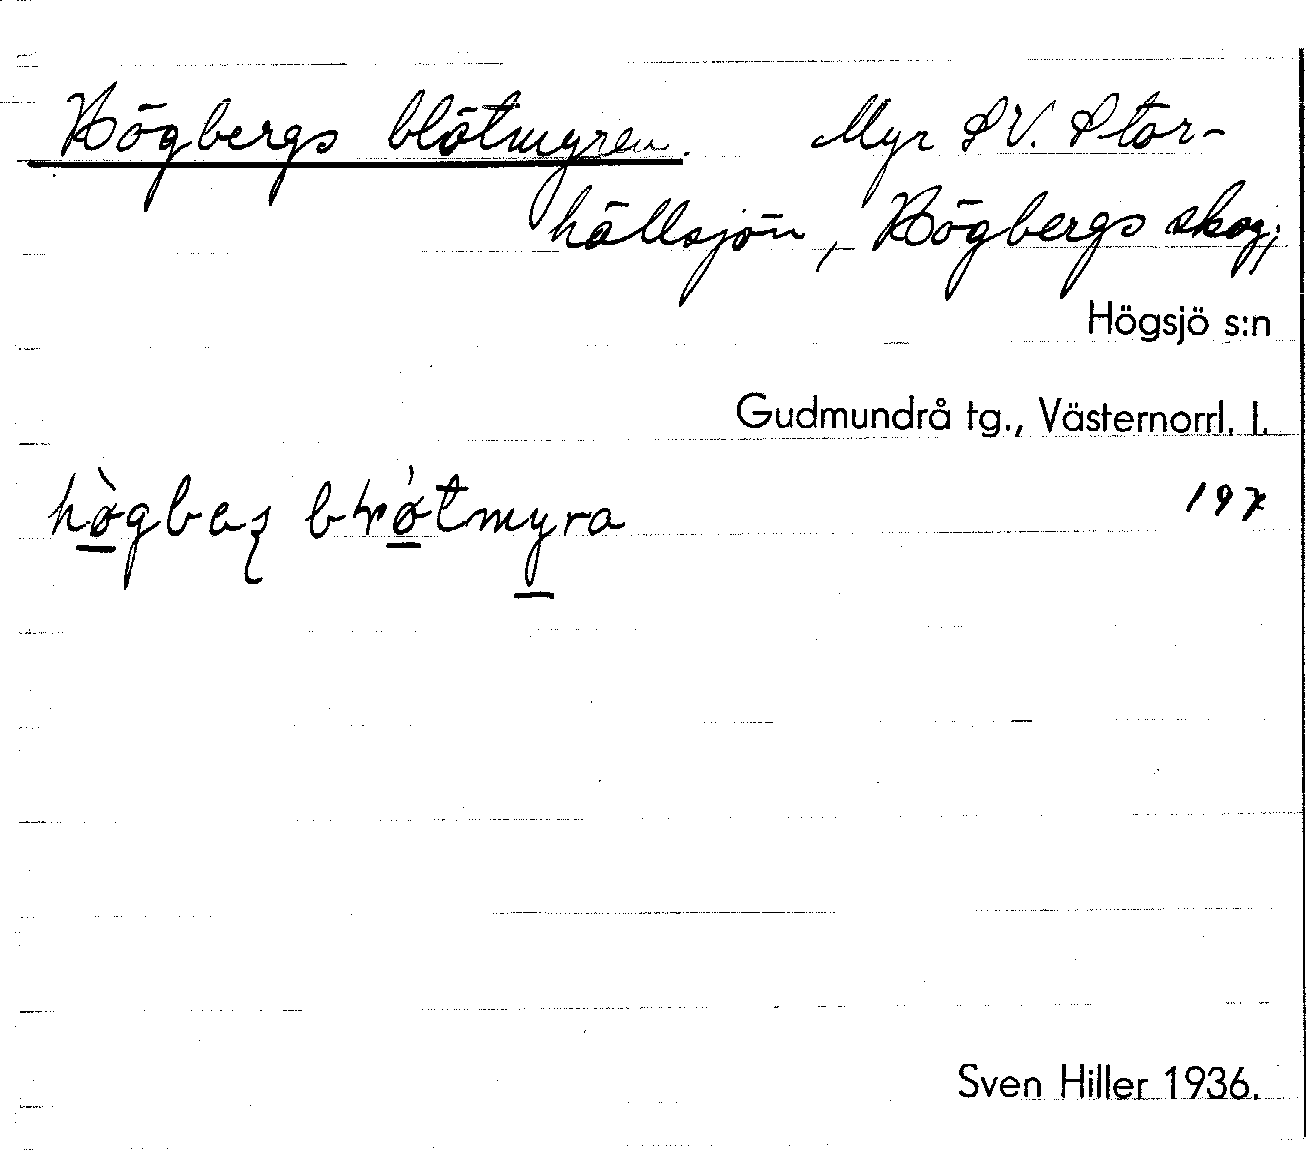 Högbergs blötmyren. Myr SV. Stor-
hällsjön, Högbergs skog;
Högsjö s:n
Gudmundrå tg., Västernorrl. l.
197
Sven Hiller 1936.